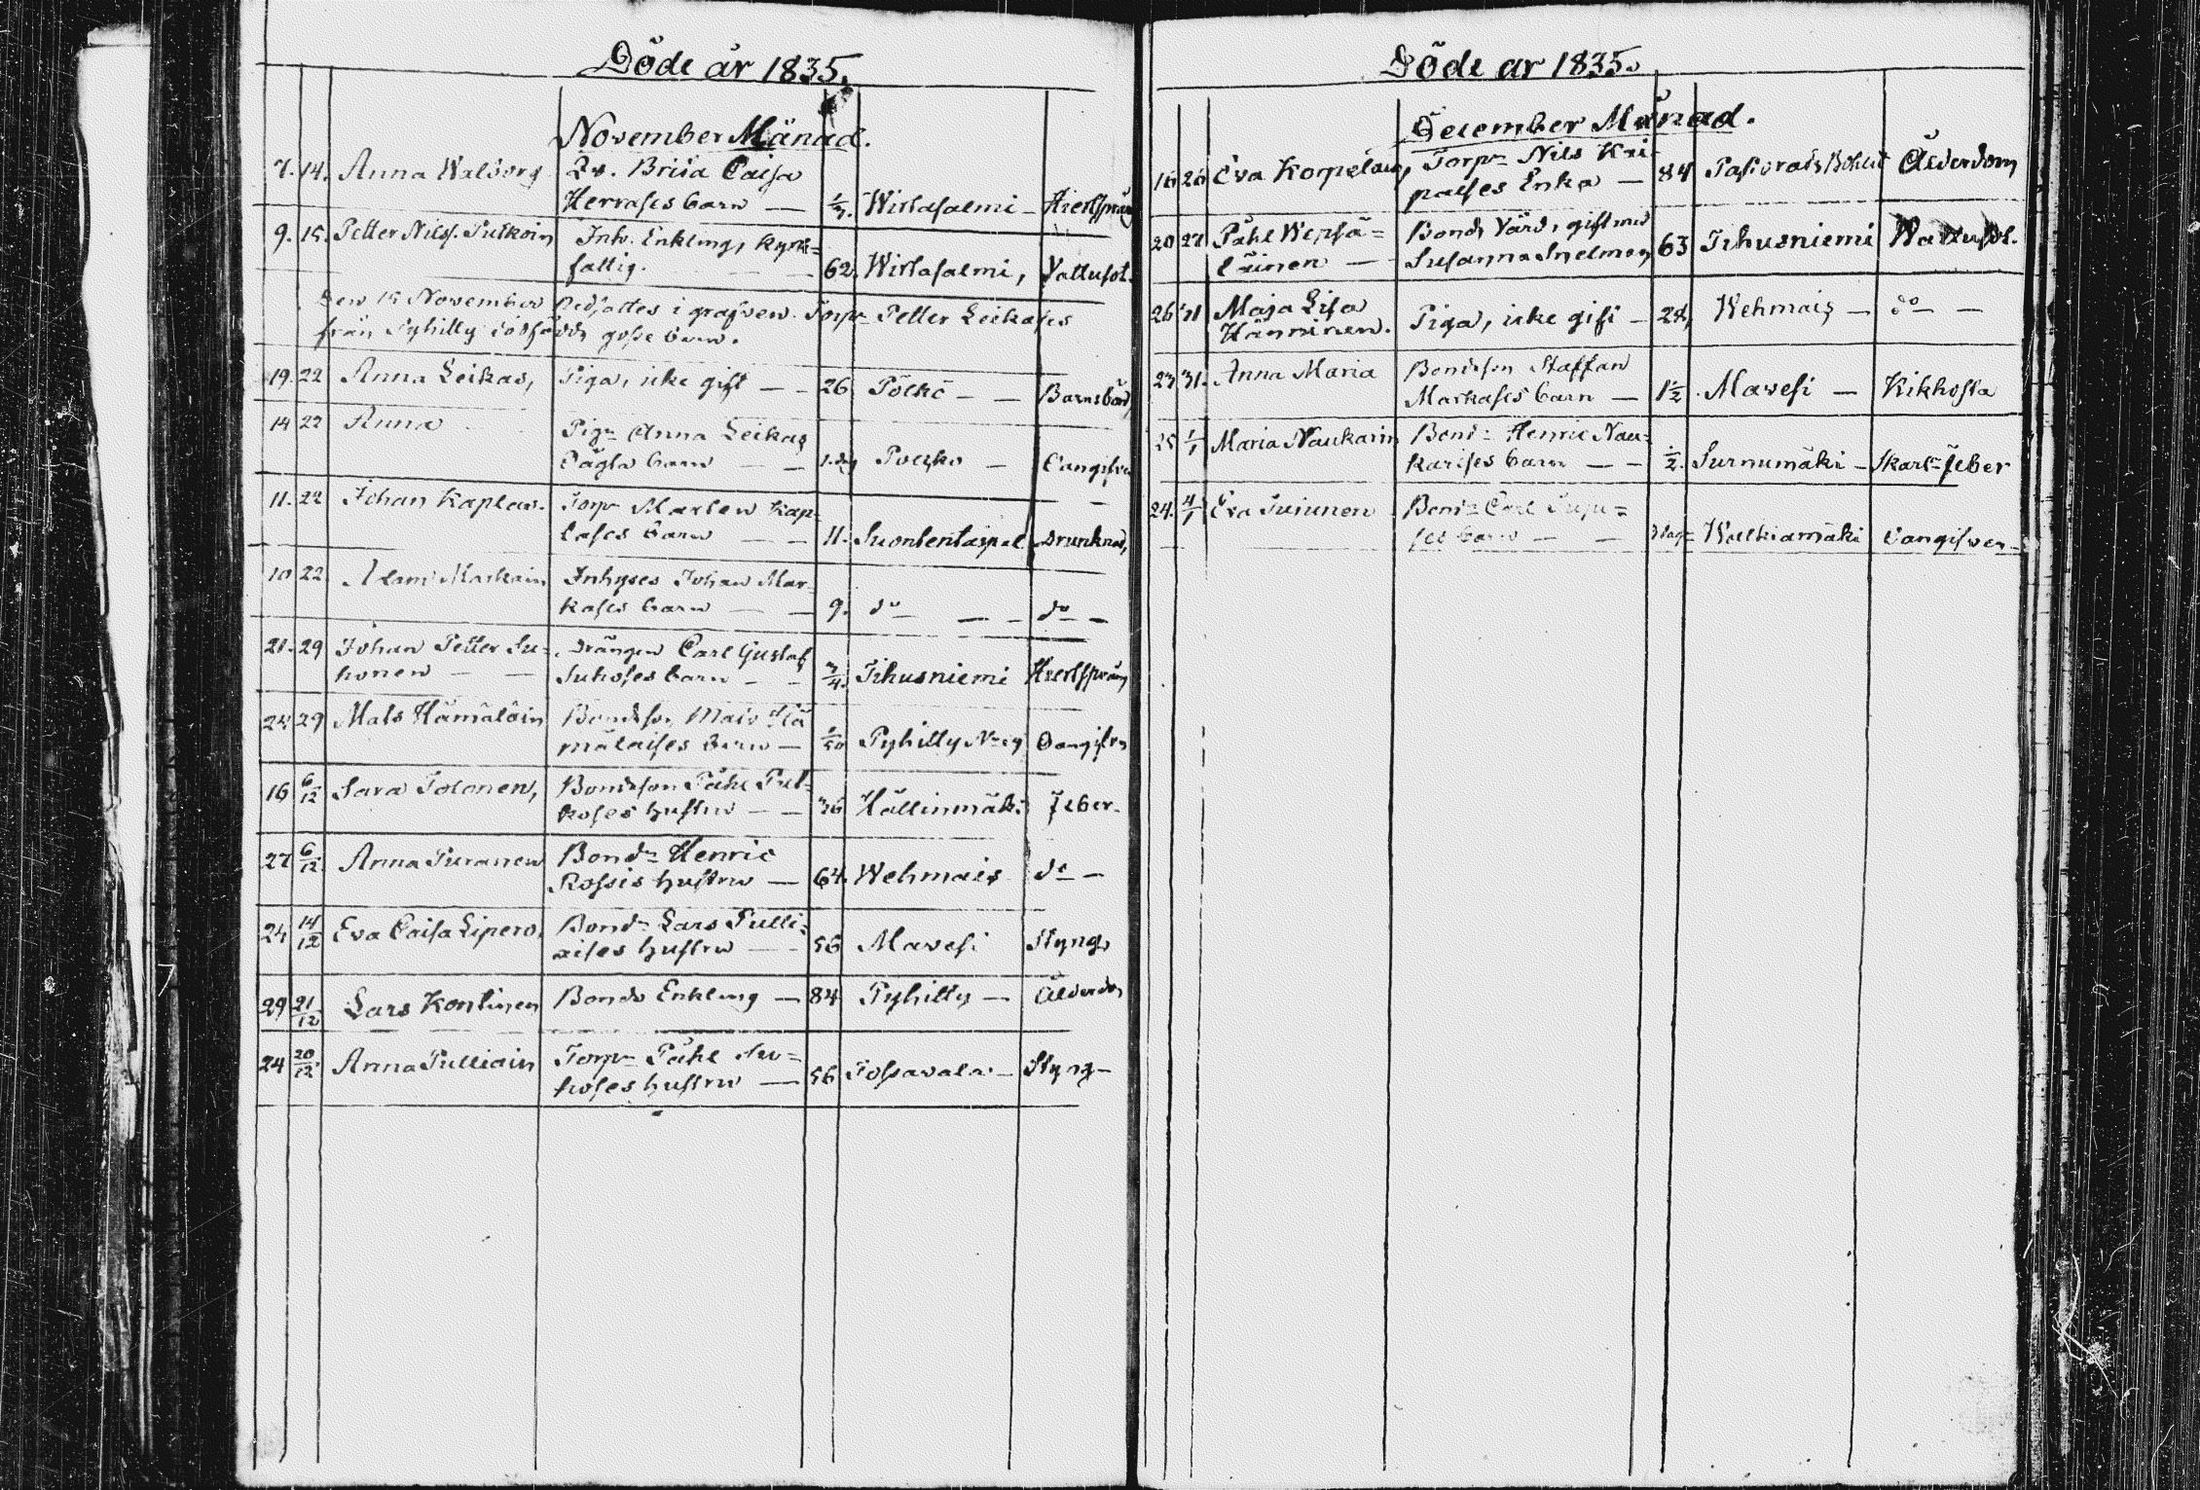 Döde år 1835.
November Månad.
7. 14. Anna Walborg Qv. Brita Caisa
Herrases barn — 1/3. Wirtasalmi — Hiertsprång
9. 15. Petter Nilss. Pulkoin Inh. Enkling, kyrk=
fattig. 62. Wirtasalmi, Vattusot.
Den 15 November nedsattes i grafven Torp:n Petter Leikases
från Pyhitty dödfödda gosse barn.
19. 22 Anna Leikas, Piga, icke gift — — 26 Pölkö — — Barnsbörd
14 22 Anna Pig:n Anna Leikas
oägta barn — — Poelko — Oangifven
11. 22 Johan Kaplas. Torp:n Marten Kap=
lases barn — — 11. Suontentaipal Drunknad,
10 22 Adam Markain Inhyses Johan Mar=
kases barn — — 9. do — — do —
21. 29 Johan Petter Su=
honen — — Drängen Carl Gustaf
Suhoses barn — — 3/4. Tihusniemi Hiertsprång
24 29 Mats Hämäläin Bondeson Mats Hä
mäläises barn — Pyhitty N:o 9 Oangifven
16 6/12 Sara Tolonen, Bondeson Påhl Pul=
koses hustru — — 36 Hällinmäki Feber.
27 6/12 Anna Puranen Bond:n Henric
Rossis hustru — 64. Wehmais do —
24 14/12 Eva Caisa Lipero. Bond:n Lars Pulli=
aises hustru — 56 Mavesi Styng.
29 21/12 Lars Kontinen Bonde Enkling — 84 Pyhitty — Ålderdom
24 20/12 Anna Pulliain Torp:n Påhl Su=
hoses hustru — 56 Tossavala — Styng —
Döde år 1835.
December Månad.
16 26 Eva Korpelain, Torp:n Nils Kri=
palses Enka — 84 Pastorats Bohlet Ålderdom
20 27 Påhl Wepsä=
läinen — Bonde, Värd, gift med
Susanna Snelman, 63 Tihusniemi Wattusot.
26 31 Maja Lisa
Hänninen. Piga, icke gift — 28, Wehmais — do — —
23 31. Anna Maria Bondeson Staffan
Markases barn — 1 1/2 Mavesi — Kikhosta
25 1/1 Maria Naukarin Bond:n Henric Nau=
karises barn — — 1/2. Surnumäki — Skarl:s Feber
24. 4/1 Eva Tujunen Bond:n Carl Tuju=
ses barn — — 3 dag: Walkiamäki Oangifven —